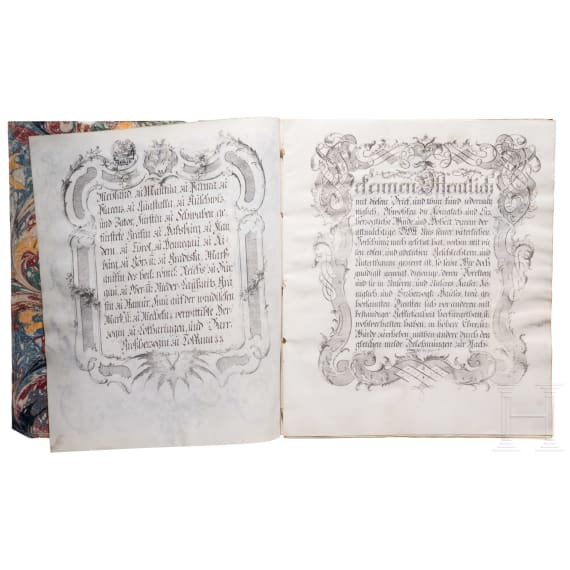 Meyland, zu Mantua, zu Parma, zu
Placenz, zu Quastalla, zu Auschwitz
und Zator, Fürstin zu Schwaben, ge-
fürstete Gräfin zu Habspurg, zu Flan-
dern, zu Tyrol, zu Hennegau, zu Ky-
burg, zu Görz, und Gradisca, Marg-
gräfin des heil. röm. Reichs, zu Bur-
gau, zu Ober- und Nieder-Laußnitz, Grä-
fin zu Namur, Frau auf der windischen
Mark, und zu Mecheln, verwittibte Her-
zogin zu Lothringen, und Barr,
Großherzogin zu Toscana
Bekennen Öffentlich
mit diesem Brief, und thun kund jedermän-
niglich, Obwohlen die Königlich- und Erz-
herzogliche Würde, und Hoheit, worein der
allmächtige GOTT Uns seiner väterlichen
Vorsehung nach gesetzet hat, vorhin mit vie-
len edlen, und adelichen Geschlechtern, und
Unterthanen gezieret ist, so seind Wir doch
gnädigst geneigt, diejenige, deren Voreltern
und sie in Unseren, und Unseres Kaiser-Kö-
niglich- und Erzherzogl. Hauses treu ge-
horsamsten Diensten sich vor anderen mit
beständiger
wohlverhalten haben, in höhere Ehre, und
Würde zu erheben, mithin andere durch der-
gleichen milde Belohnungen zur Nach-